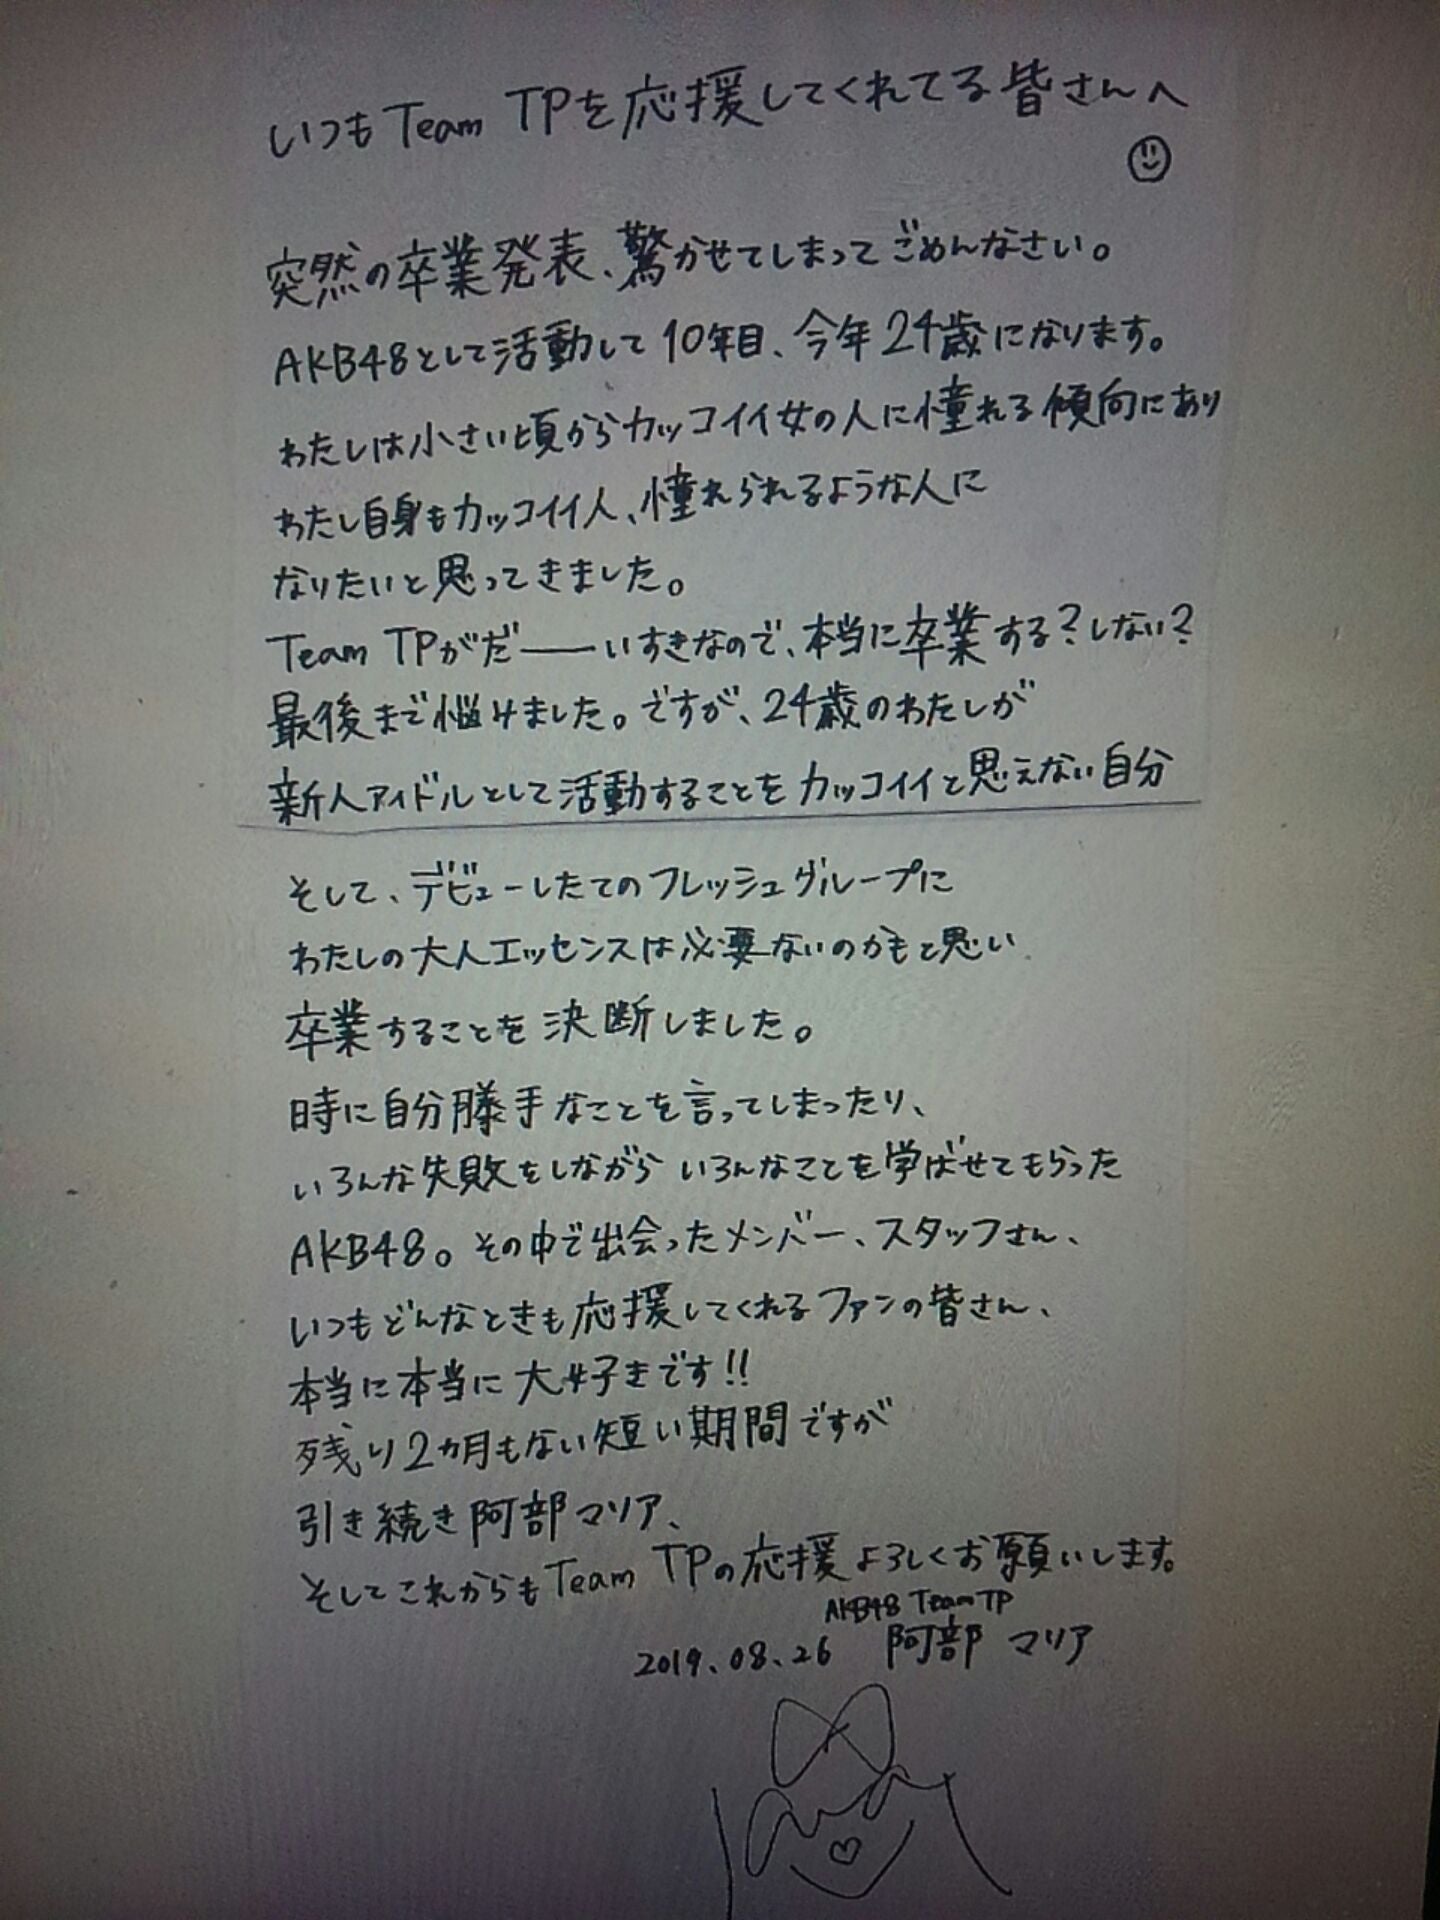 いつもTeam TPを応援してくれてる皆さんへ
突然の卒業発表、驚かせてしまってごめんなさい。
AKB48として活動して10年目、今年24歳になります。
わたしは小さい頃からカッコイイ女の人に憧れる傾向にあり
わたし自身もカッコイイ人、憧れられるような人に
なりたいと思ってきました。
Team TPがだーーいすきなので、本当に卒業する?しない?
最後まで悩みました。ですが、24歳のわたしが
新人アイドルとして活動することをカッコイイと思えない自分
そして、デビューしたてのフレッシュグループに
わたしの大人エッセンスは必要ないのかもと思い
卒業することを決断しました。
時に自分勝手なことを言ってしまったり、
いろんな失敗をしながらいろんなことを学ばせてもらった
AKB48。その中で出会ったメンバー、スタッフさん、
いつもどんなときも応援してくれるファンの皆さん、
本当に本当に大好きです!!
残り2カ月もない短い期間ですが
引き続き阿部マリア、
そしてこれからもTeam TPの応援よろしくお願いします。
AKB48 Team TP
2019.08.26 阿部 マリア